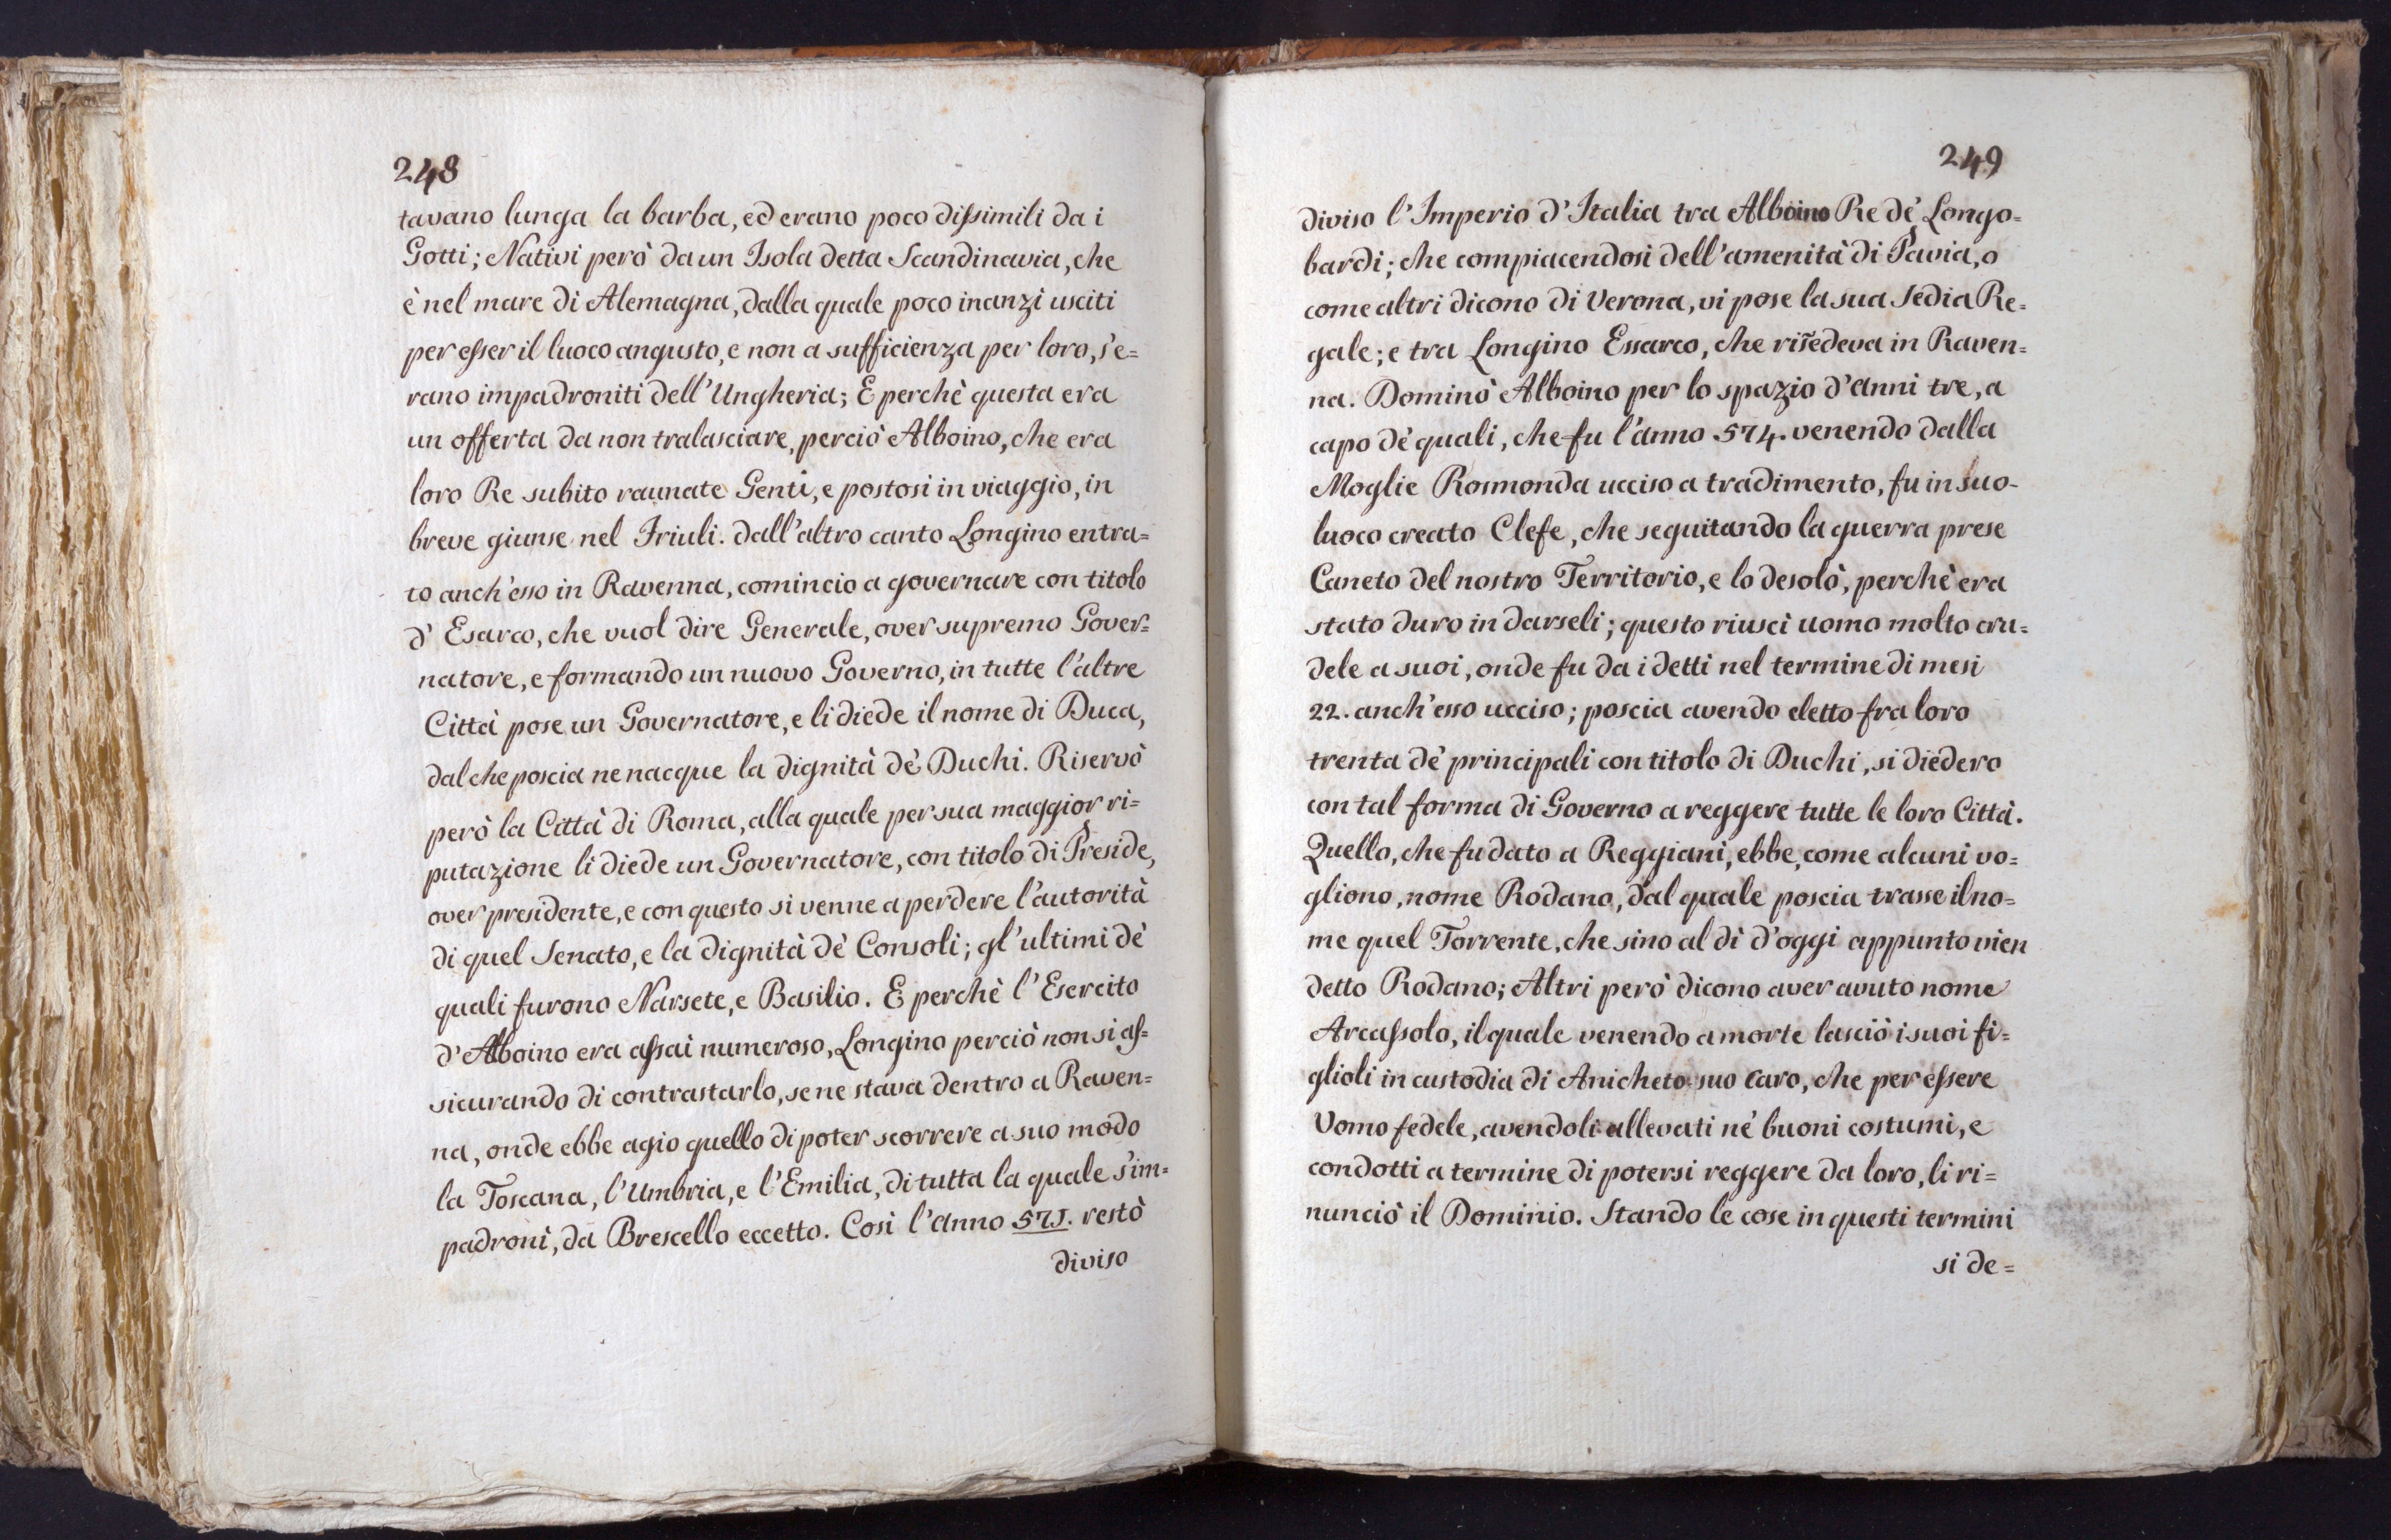 248
tavano lunga la barba, ed erano poco dissimili da i
Gotti; Nativi però da un Isola detta Scandinavia, che
è nel mare di Alemagna, dalla quale poco inanzi usciti
per esser il luoco angusto, e non a sufficienza per loro, s'e=
rano impadroniti dell'Ungheria; E perchè questa era
un offerta da non tralasciare, perciò Alboino, che era
loro Re subito raunate Genti, e postosi in viaggio, in
breve giunse nel Friuli. dall'altro canto Longino entra=
to anch'esso in Ravenna, comincio a governare con titolo
d' Esarco, che vuol dire Generale, over supremo Gover=
natore, e formando un nuovo Governo, in tutte l'altre
Città pose un Governatore, e li diede il nome di Duca,
dal che poscia ne nacque la dignità dè Duchi. Riservò
però la Città di Roma, alla quale per sua maggior ri=
putazione li diede un Governatore, con titolo di Preside,
over presidente, e con questo si venne a perdere l'autorità
di quel Senato, e la dignità dè Consoli; gl'ultimi dè
quali furono Narsete, e Basilio. E perchè l'Esercito
d'Alboino era assai numeroso, Longino perciò non si as=
sicurando di contrastarlo, se ne stava dentro a Raven=
na, onde ebbe agio quello di poter scorrere a suo modo
la Toscana, l'Umbria, e l'Emilia, di tutta la quale s'im=
padronì, da Brescello eccetto. Così l'Anno 571. restò
diviso
249
diviso l'Imperio d'Italia tra Alboino Re dè Longo=
bardi; che compiacendosi dell'amenità di Pavia, o
come altri dicono di Verona, vi pose la sua Sedia Re=
gale; e tra Longino Essarco, che risedeva in Raven=
na. Dominò Alboino per lo spazio d'anni tre, a
capo dè quali, che fu l'anno 574. venendo dalla
Moglie Rosmonda ucciso a tradimento, fu in suo-
luoco creato Clefe, che seguitando la guerra prese
Caneto del nostro Territorio, e lo desolò, perchè era
stato duro in darseli; questo riuscì uomo molto cru=
dele a suoi, onde fu da i detti nel termine di mesi
22. anch'esso ucciso; poscia avendo eletto fra loro
trenta dè principali con titolo di Duchi, si diedero
con tal forma di Governo a reggere tutte le loro Città.
Quello, che fu dato a Reggiani, ebbe, come alcuni vo=
gliono, nome Rodano, dal quale poscia trasse il no=
me quel Torrente, che sino al dì d'oggi appunto vien
detto Rodano; Altri però dicono aver avuto nome
Arcassolo, il quale venendo a morte lasciò i suoi fi=
glioli in custodia di Anicheto suo Caro, che per essere
Uomo fedele, avendoli allevati nè buoni costumi, e
condotti a termine di potersi reggere da loro, li ri=
nunciò il Dominio. Stando le cose in questi termini
si de=